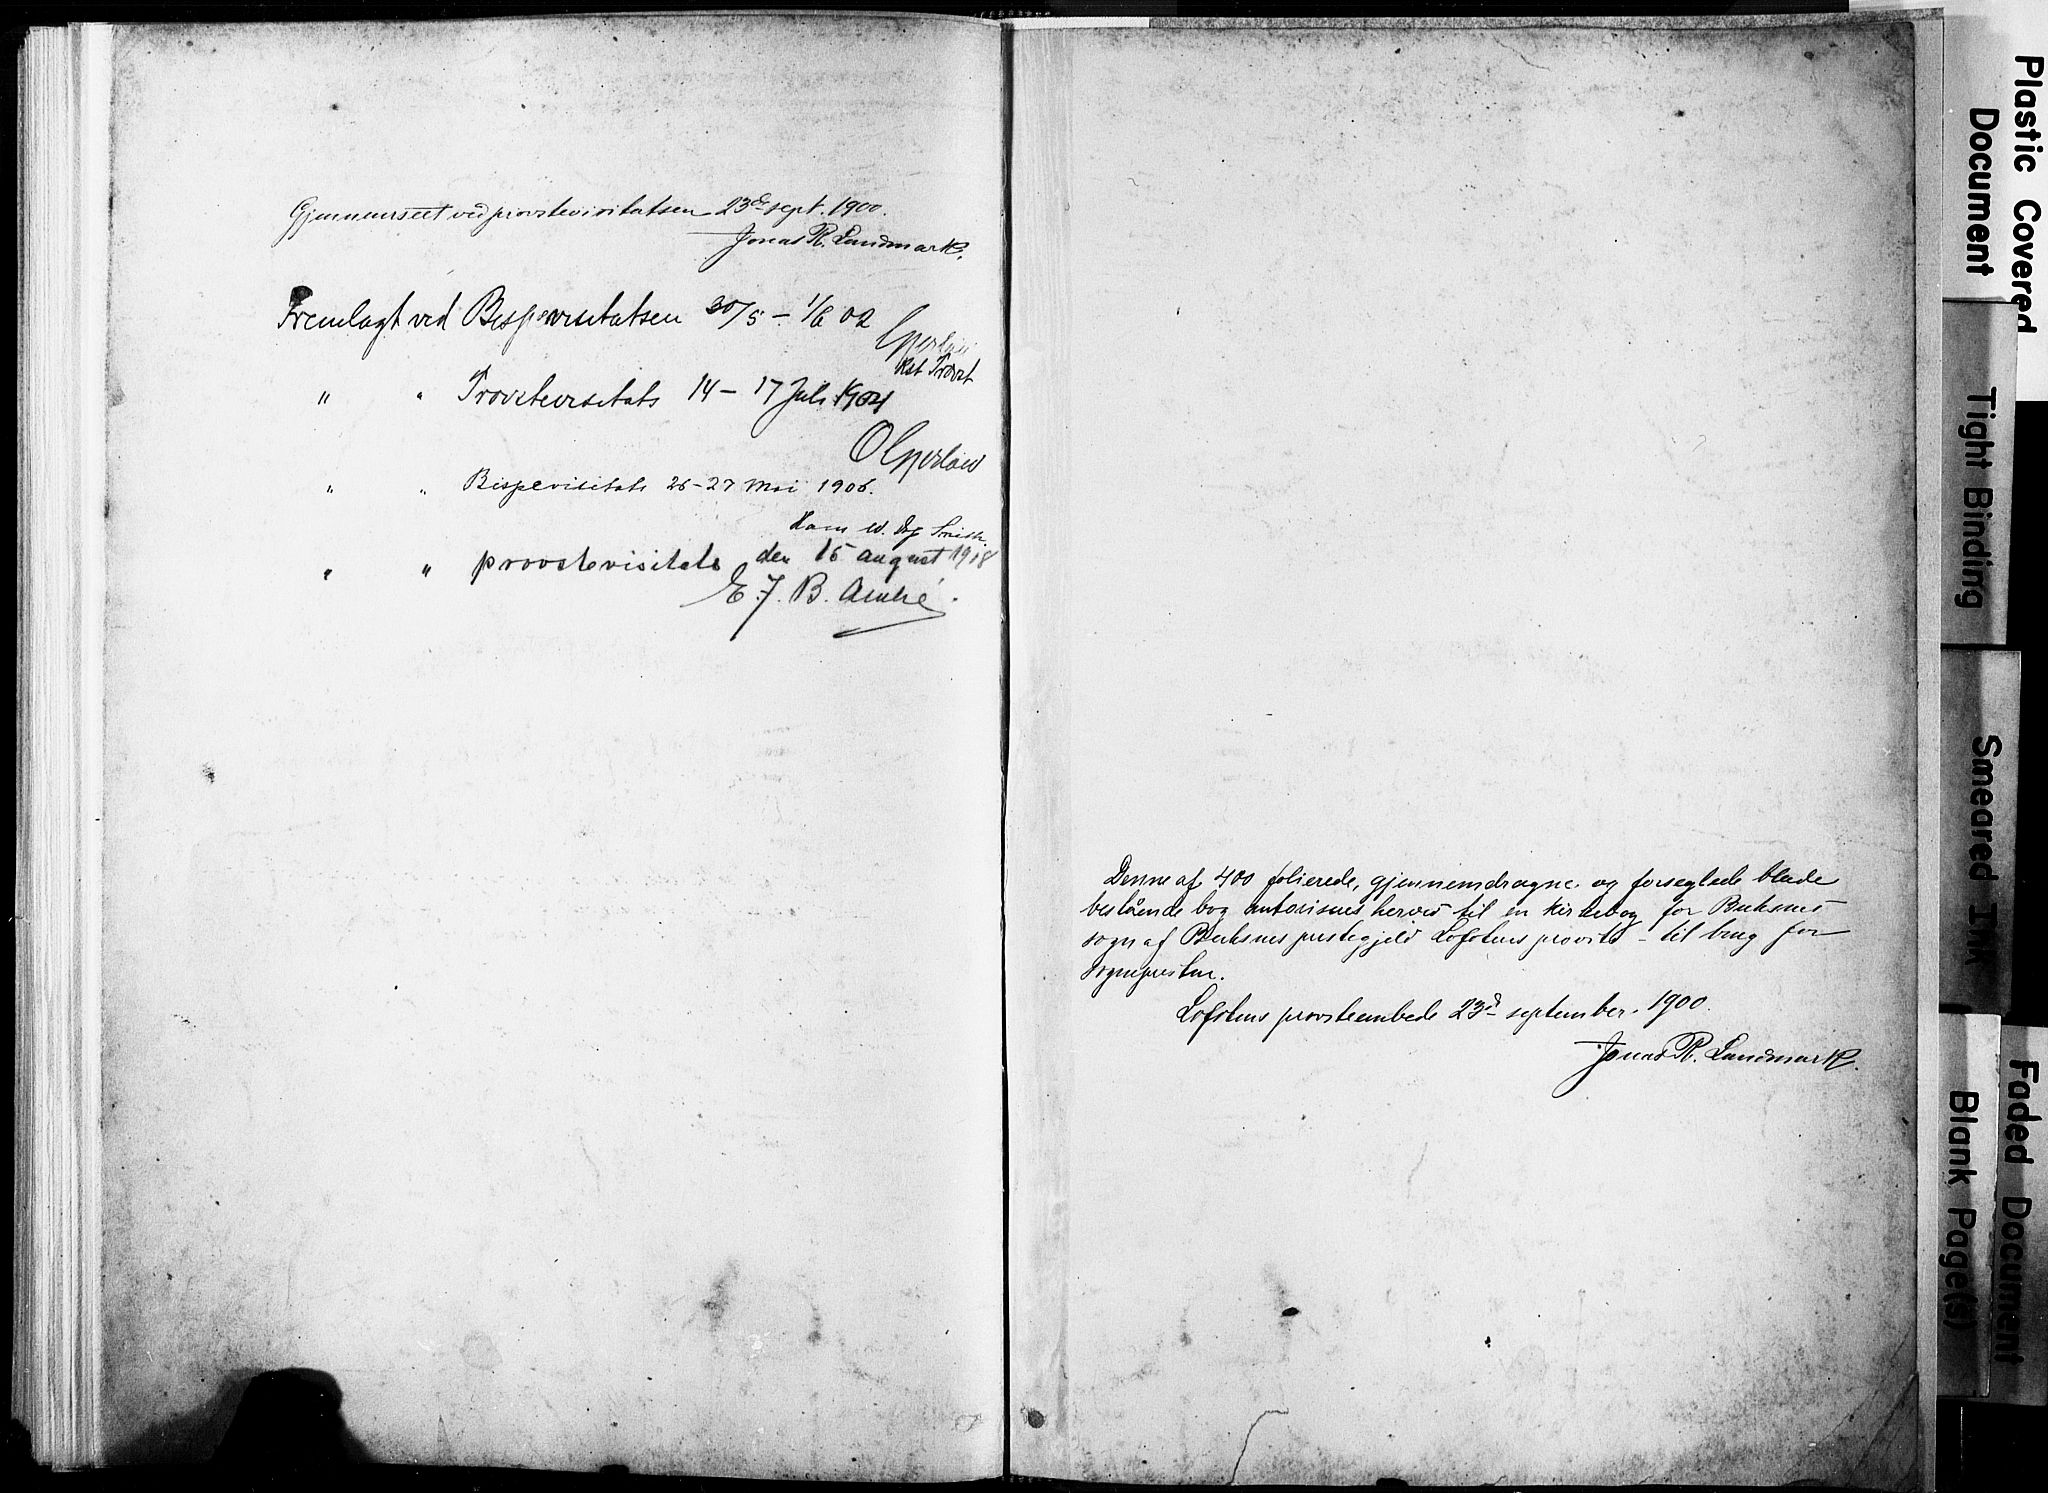 Gjennemseet ved provstevisitatsen 23de sept. 1900.
Jonas R. Landmark.
Fremlagt ved Bispevisitatsen 30/5 – 1/6 02
kst Provst
" " Provstevisitats 14 – 17 Juli 1904
" " Bispevisitats 26–27 Mai 1906.
" " provstevisitats den 15 august 1918
E. F. B. André.
Denne af 400 folierede, gjennemdragne og forseglede blade
bestående bog autoriseres herved til en kirkebog for Buksnes
sogn af Buksnes prestegjeld Lofotens provsti – til brug for
sognepresten.
Lofotens provsteembede 23d september 1900.
Jonas R. Landmark.
Plastic Covered
Document
Tight Binding
Smeared Ink
Faded Document
Blank Page(s)